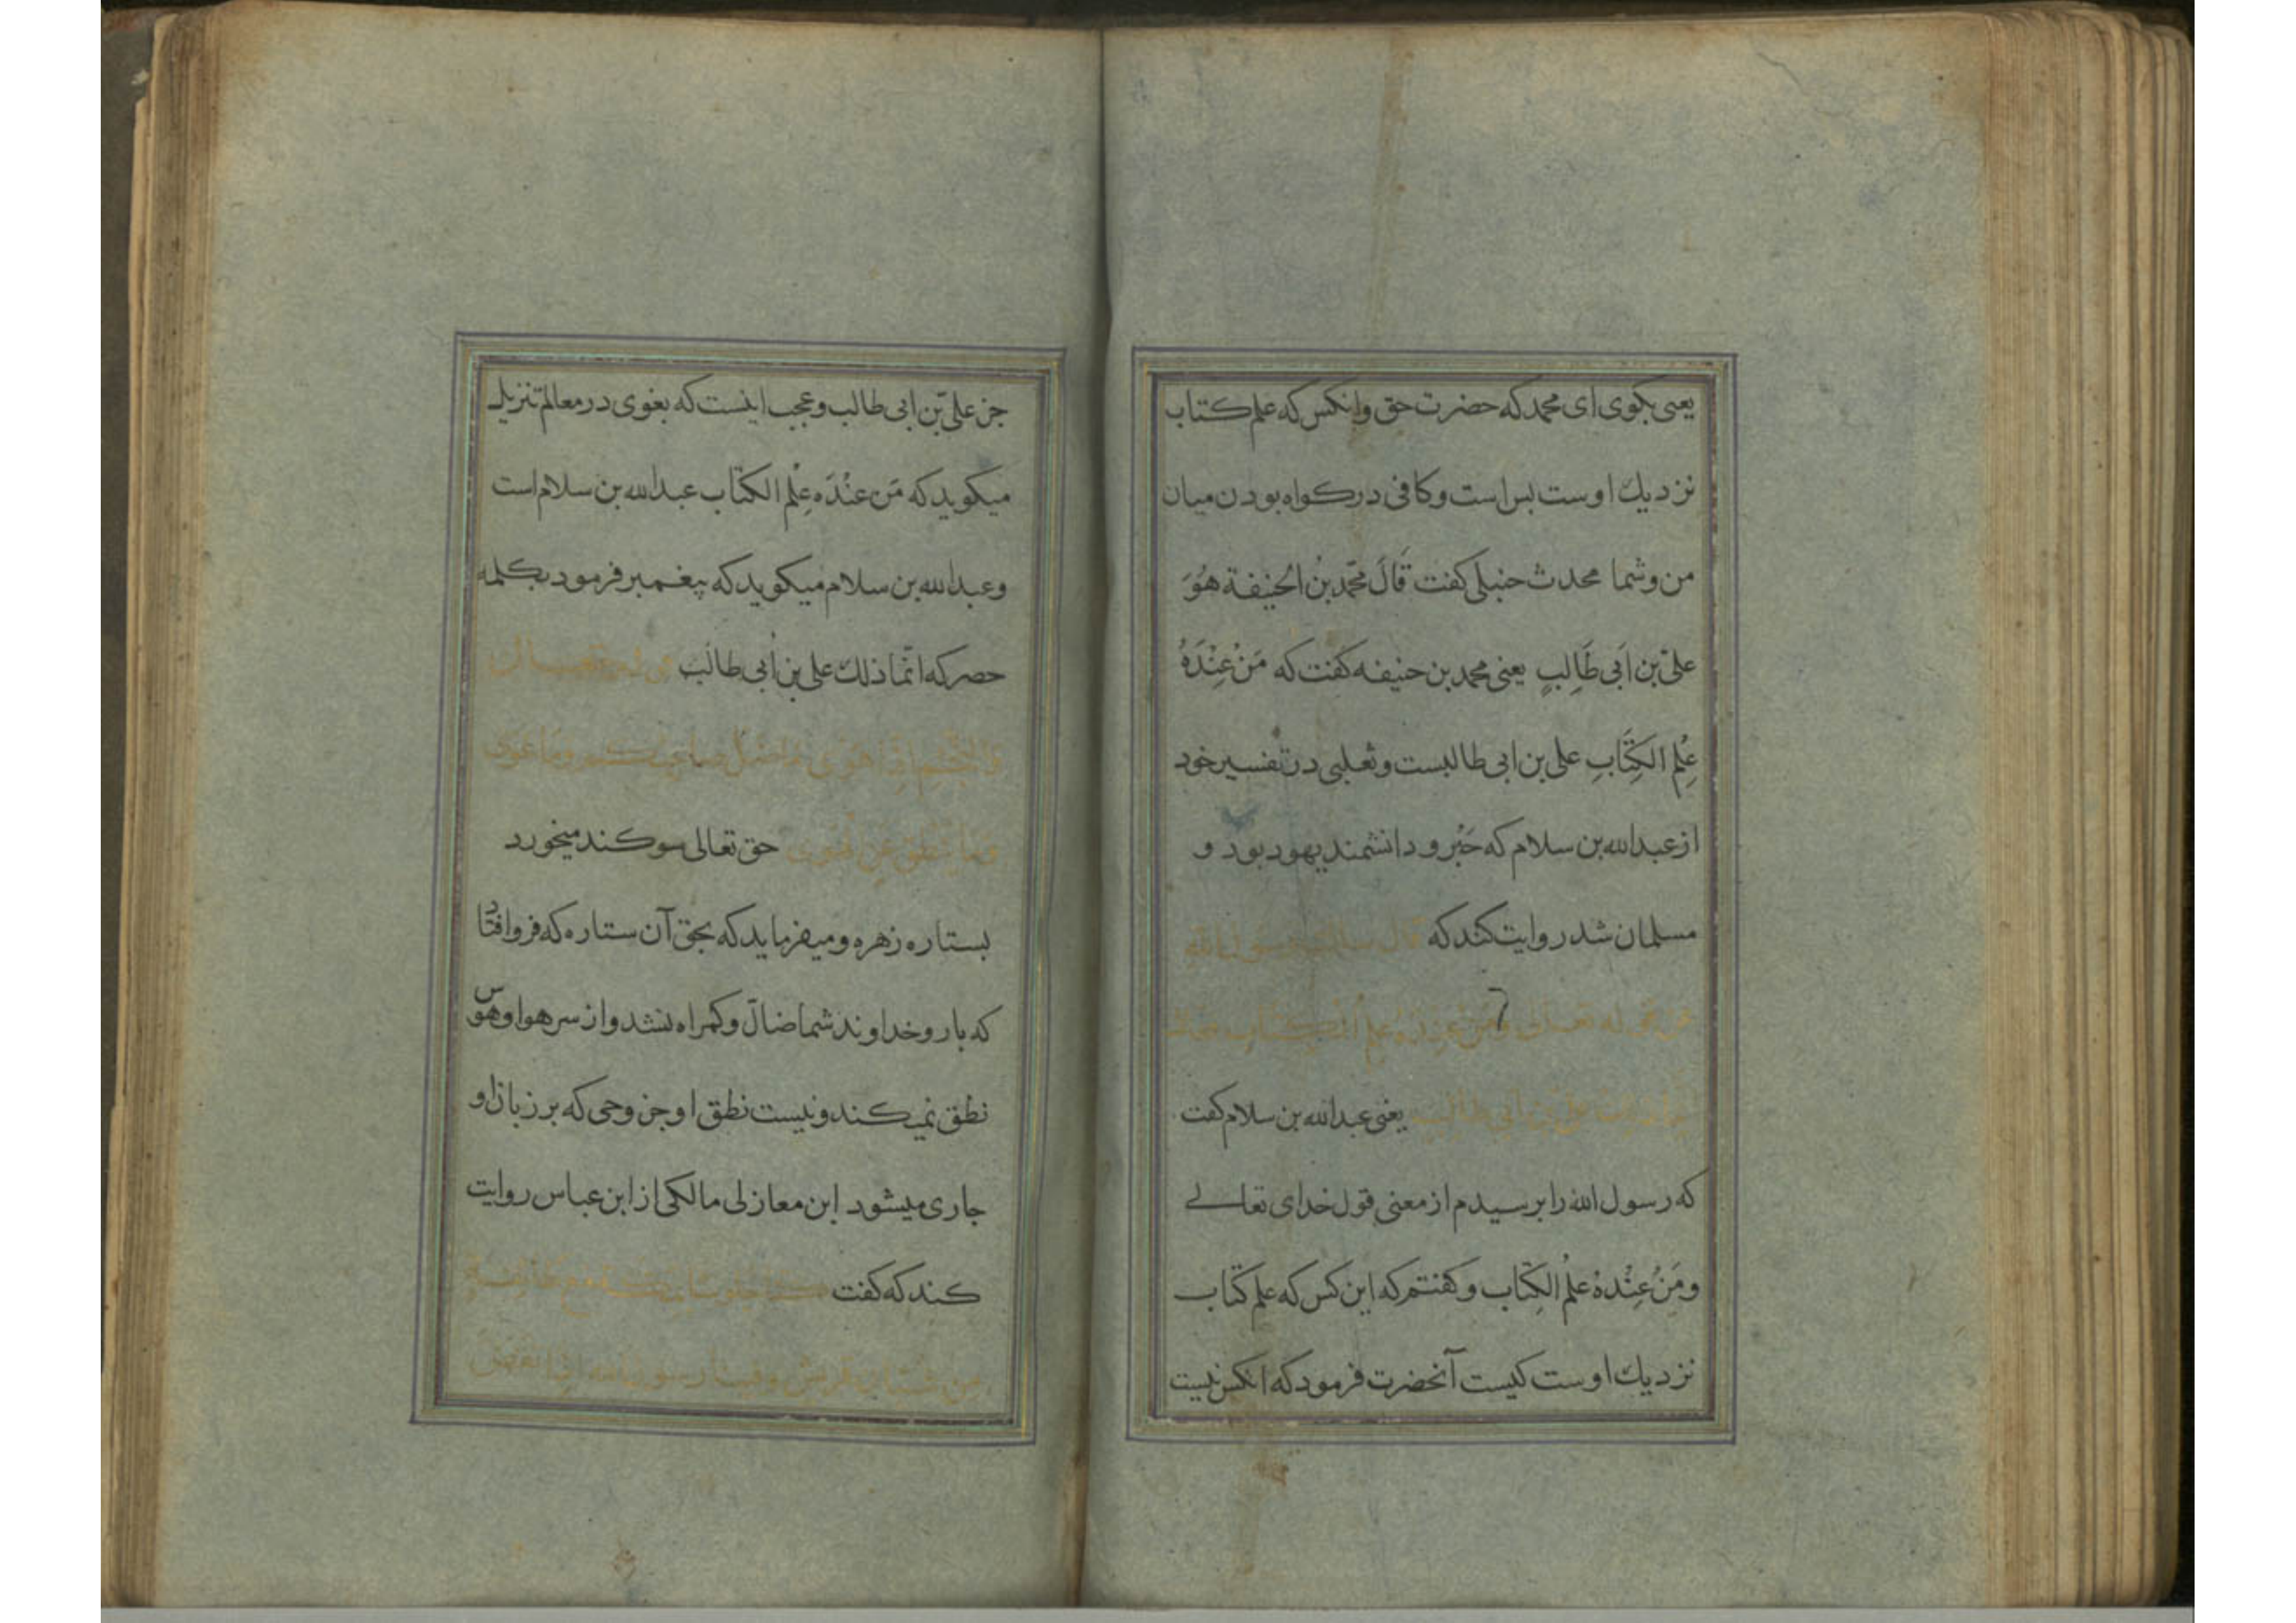 یعنی بکوی ای محمد که حضرت حق و انکس که علم کتاب
نزدیك اوست بس است و کافی در کواه بودن میان
من و شما محدث حنبلی کفت قَالَ محمّد بنُ الحنیفة هُوَ
علیّ بن اَبی طَالِبٍ یعنی محمد بن حنیفه کفت که مَنْ عِنْدَهُ
عِلْم الکِتَابِ علی بن ابی طالبست و ثعلبی در تفسیر خود
از عبدالله بن سلام که حَبْر و دانشمند یهود بود و
مسلمان شد روایت کند که قال سالت رسول الله
عن قوله تعالی وَمَنْ عِنْدَهُ عِلْمُ الکِتَابِ
علی بن ابی طالب یعنی عبدالله بن سلام کفت
که رسول الله را برسیدم از معنی قول خدای تعالے
ومَنْ عِنْدهُ عِلْمُ الکِتَاب و کفتم که این کس که علم کتاب
نزدیك اوست کیست آنحضرت فرمود که انکس نیست
جز علیّ بن ابی طالب و عجب اینست که بغوی در معالم تنزیل
میکوید که مَن عنْدَه عِلْم الکتاب عبدالله بن سلام است
و عبدالله بن سلام میکوید که پیغمبر فرمود بکلمه
حصر که انّما ذلك علی بن أبی طالب
وَالنَّجْمِ اِذَا هَوَی مَا ضَلَّ صَاحِبُکُمْ وَمَا غَوَی
وما ینطق عن الهوی حق تعالی سوکند میخورد
بستاره زهره و میفرماید که بحق آن ستاره که فرو افتاد
که یار و خداوند شما ضالّ و کمراه نشد و از سر هوا و هوس
نطق نمیکند و نیست نطق او جز وحی که بر زبان او
جاری میشود ابن معازلی مالکی از ابن عباس روایت
کند که کفت کنت جالسا مع
من فتیان قریش رسول الله اذا انقض